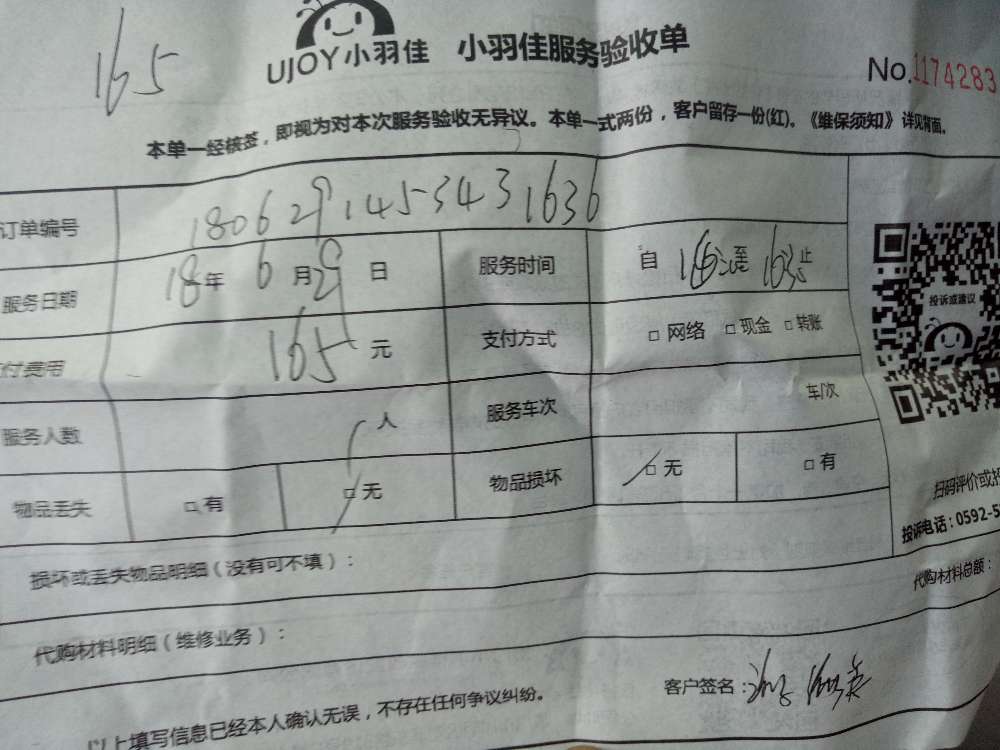 165
UJOY小羽佳 小羽佳服务验收单
No.1174283
本单一经核签，即视为对本次服务验收无异议。本单一式两份，客户留存一份(红)。《维保须知》详见背面。
订单编号 180629145343 1636
服务日期 18年 6月29日 服务时间 自 至 止
付费用 165元 支付方式 □ 网络 □ 现金 □ 转账
投诉或建议
服务人数 人 服务车次 车/次
物品丢失 □ 有 □ 无 物品损坏 □ 无 □ 有
扫码评价或投
投诉电话：0592-5
损坏或丢失物品明细（没有可不填）：
代购材料明细（维修业务）： 代购材料总额：
以上填写信息已经本人确认无误，不存在任何争议纠纷。 客户签名：